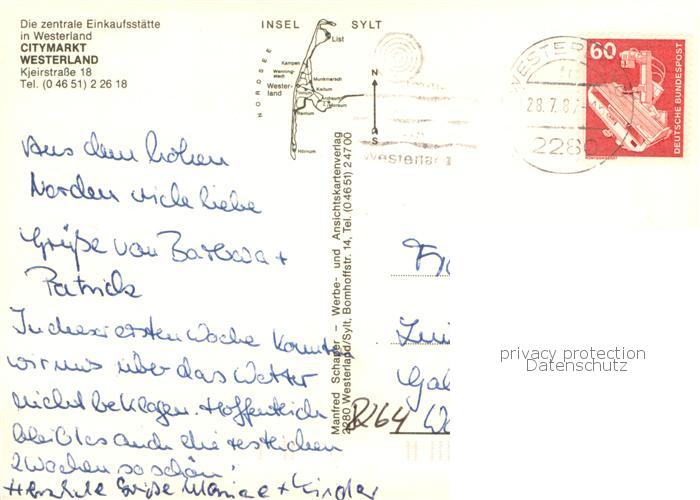 Die zentrale Einkaufsstätte
in Westerland
CITYMARKT
WESTERLAND
Kjeirstraße 18
Tel. (0 46 51) 2 26 18
INSEL SYLT
NORDSEE
List
Kampen
Wenning-
stedt
Munkmarsch
Wester-
land
Keitum
Archsum
Morsum
Rantum
Hörnum
N
S
Westerland
WESTERL
28.7.8
2280
60
DEUTSCHE BUNDESPOST
Manfred Schaper – Werbe- und Ansichtskartenverlag
2280 Westerland/Sylt, Bomhoffstr. 14, Tel. (0 46 51) 2 47 00
Aus dem hohen
Norden viele liebe
Grüße von Barbara +
Patrick
In dieser ersten Woche konnten
wir uns über das Wetter
nicht beklagen. Hoffentlich
bleibt es auch die restlichen
2 Wochen so schön!
Herzliche Grüße + Kinder
8264
privacy protection
Datenschutz